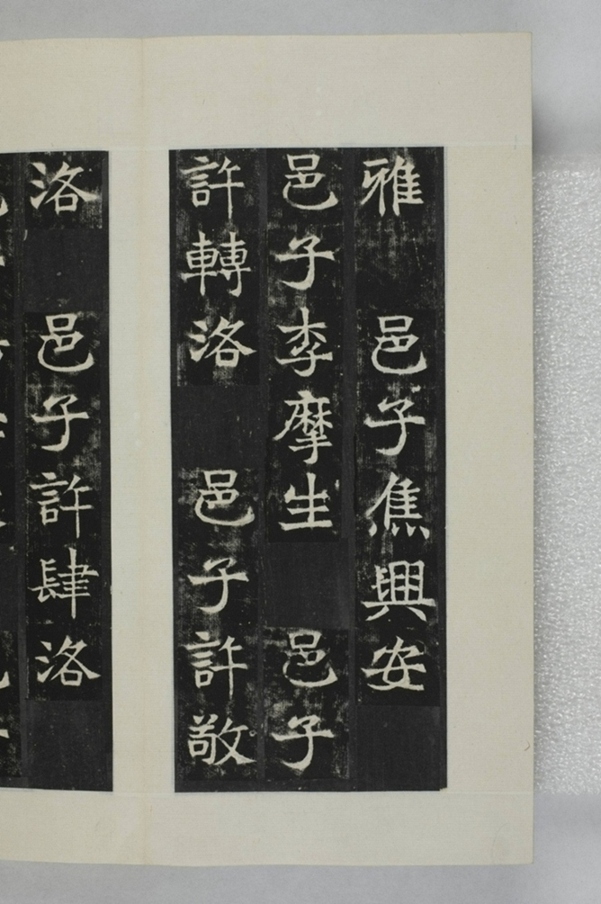 雅 邑子焦興安
邑子李摩生 邑子
許轉洛 邑子許敬
洛 邑子許肆洛